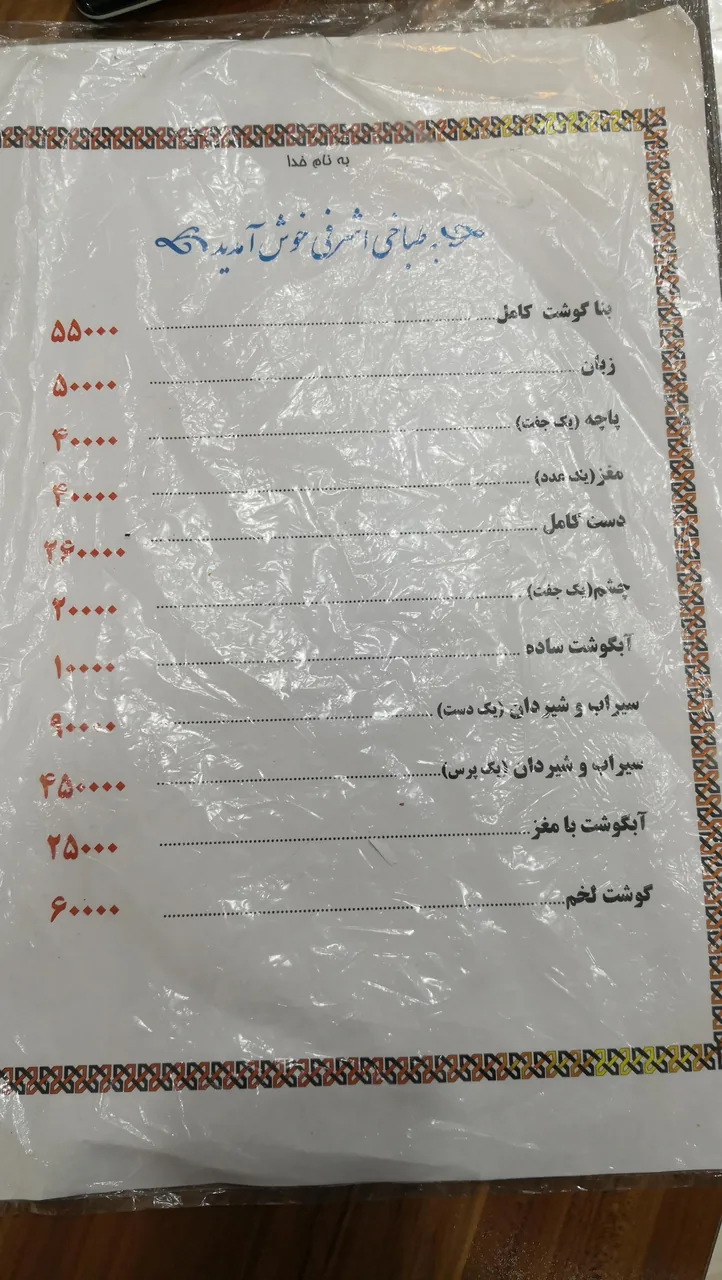 به نام خدا
به طباخی اشرفی خوش آمدید
بنا گوشت کامل ۵۵۰۰۰
زبان ۵۰۰۰۰
پاچه (یک جفت) ۴۰۰۰۰
مغز(یک عدد) ۴۰۰۰۰
دست کامل ۲۶۰۰۰۰
چشم(یک جفت) ۲۰۰۰۰
آبگوشت ساده ۱۰۰۰۰
سیراب و شیردان (یک دست) ۹۰۰۰۰
سیراب و شیردان (یک پرس) ۴۵۰۰۰۰
آبگوشت با مغز ۲۵۰۰۰
گوشت لخم ۶۰۰۰۰